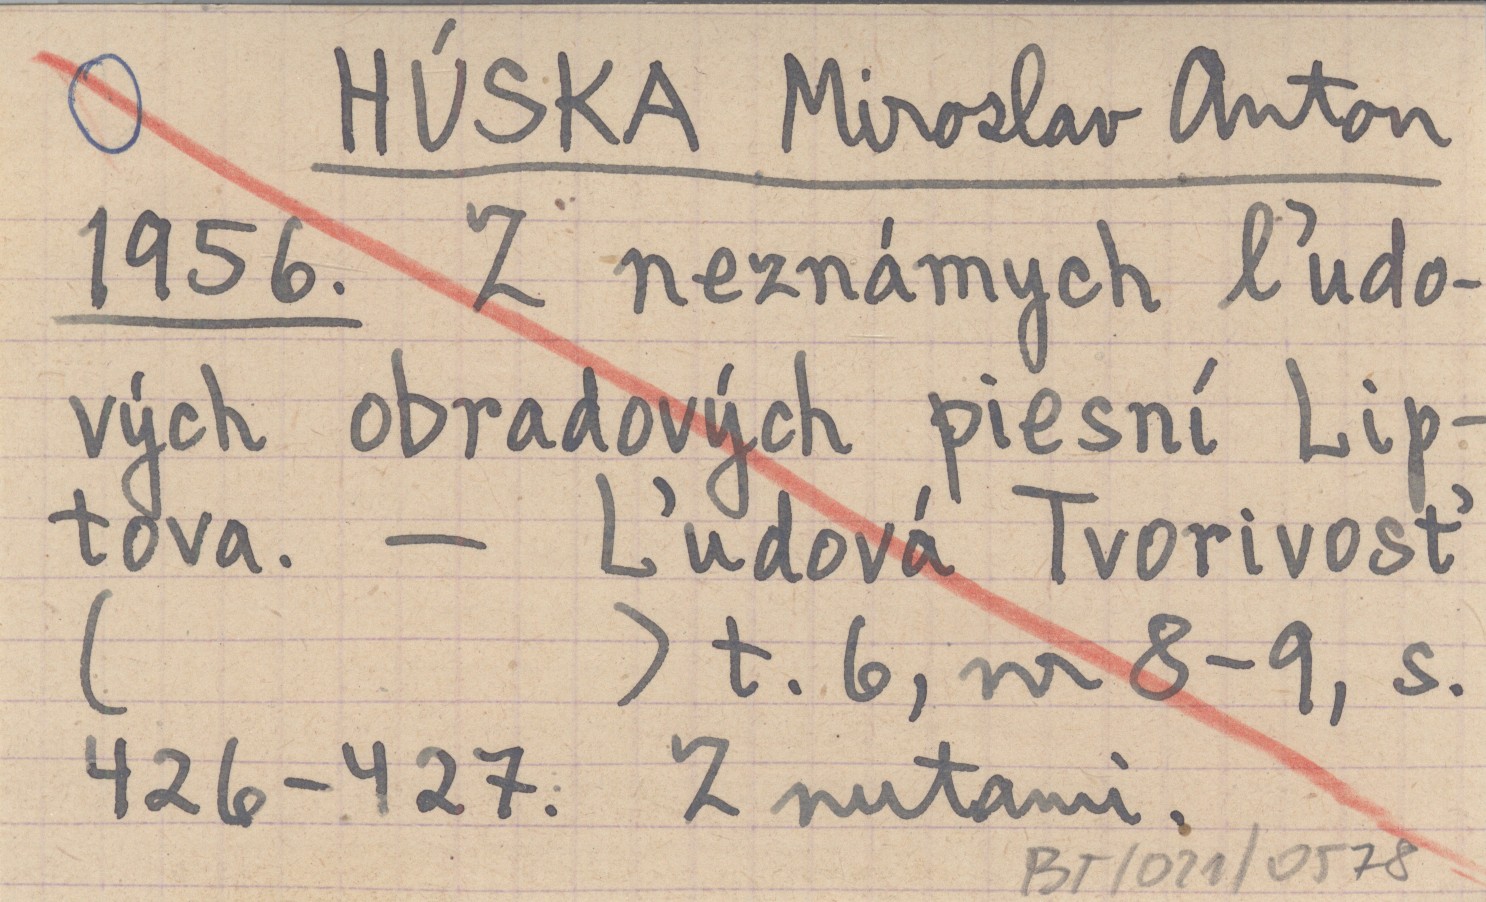 HÚSKA Miroslav Anton
1956. Z neznámych ľudo-
vých obradových piesní Lip-
tova. — Ľudová Tvorivosť
( ) t. 6, nr 8-9, s.
426-427. Z nutami.
BT/021/0578